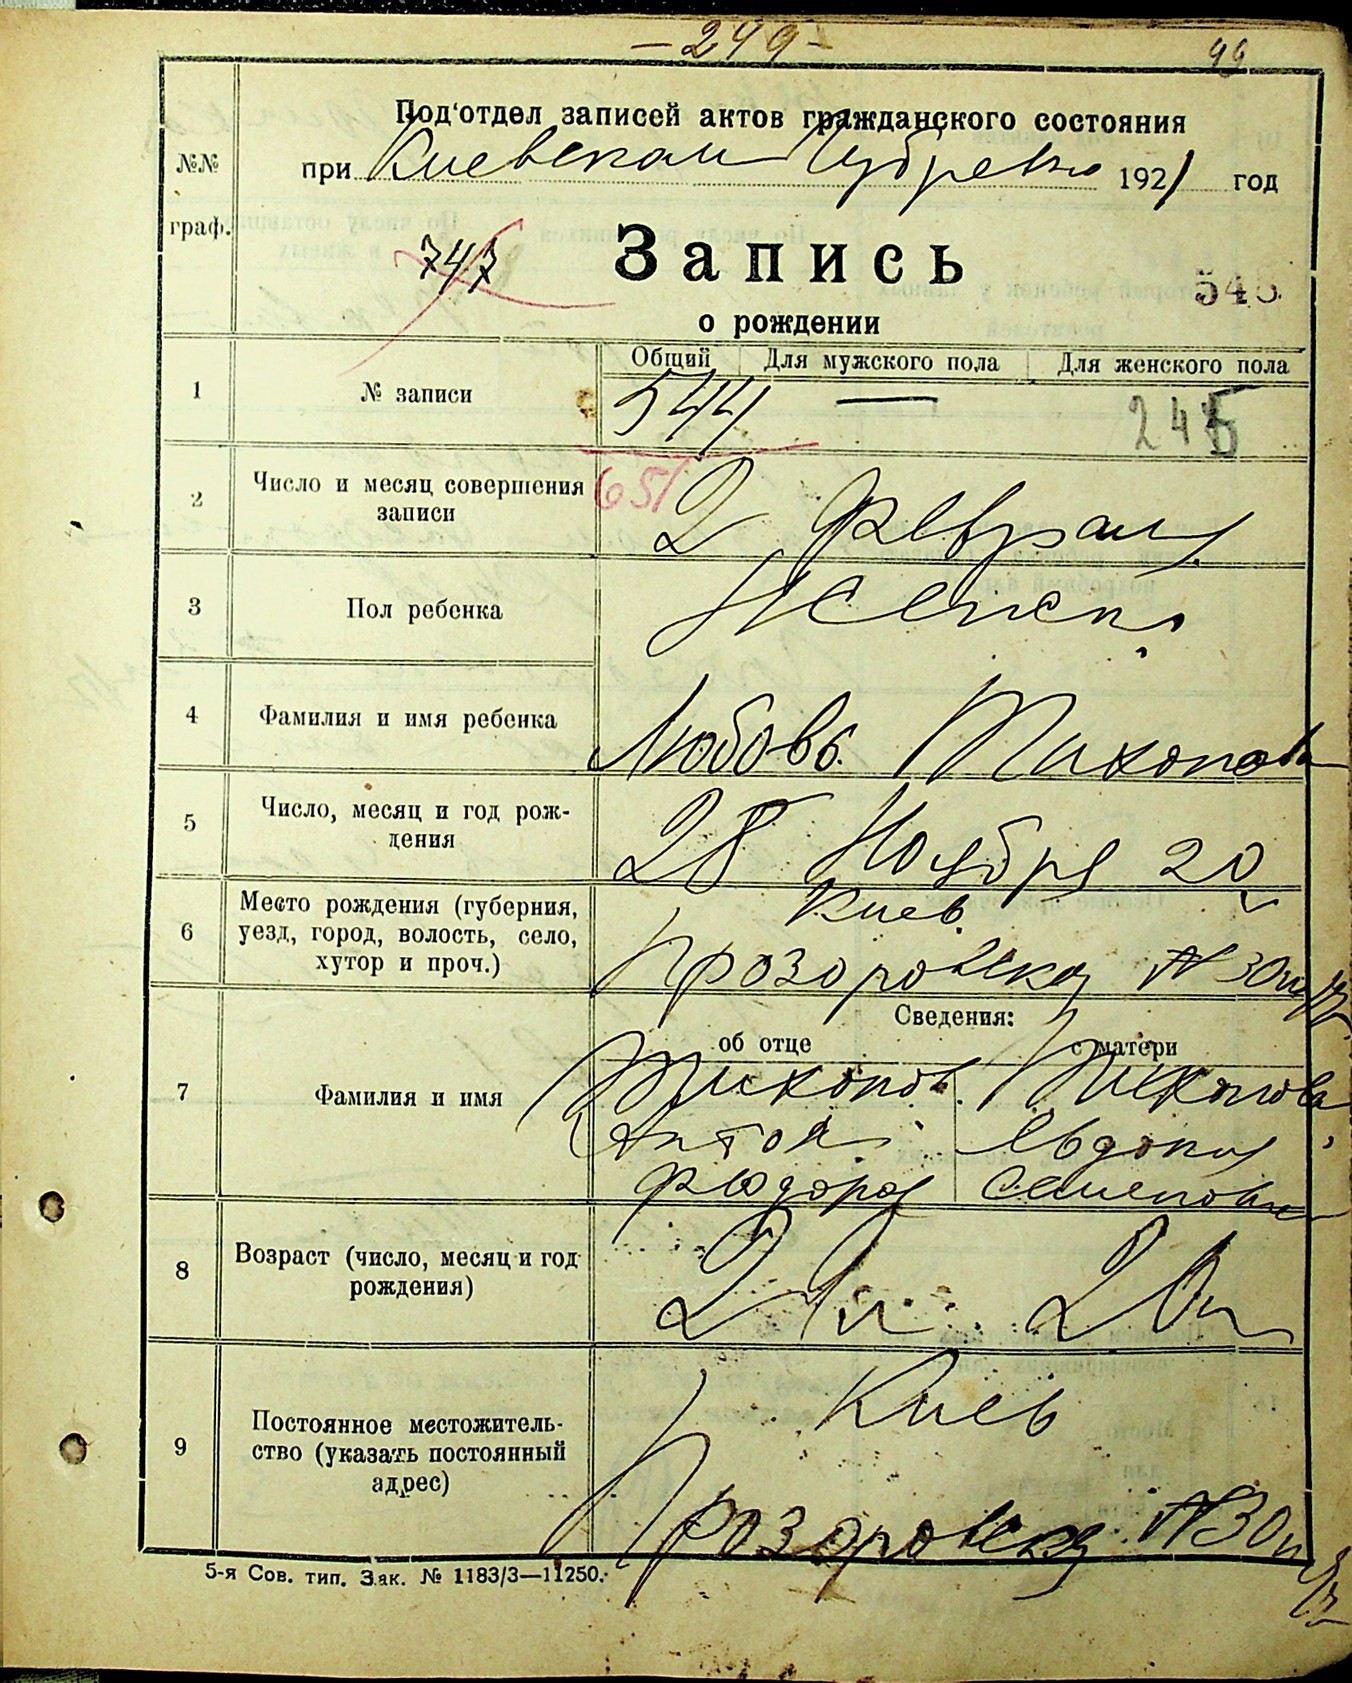 - 249 -
99
Под'отдел записей актов гражданского состояния
№№ граф.
при Киевском Губревко 1921 год
747
Запись
545
о рождении
Общий Для мужского пола Для женского пола
1 № записи 544 — 245
651
2 Число и месяц совершения
записи
2 Февраля
3 Пол ребенка Женск.
4 Фамилия и имя ребенка Любовь Тихонова
5 Число, месяц и год рож-
дения
28 Ноября 20
6 Место рождения (губерния,
уезд, город, волость, село,
хутор и проч.)
Киев
Прозоровская № 30
Сведения:
об отце о матери
7 Фамилия и имя
Тихонов Тихонова
Антон Евдокия
Федоров Семеновна
8 Возраст (число, месяц и год
рождения)
29 л. 20 л
9 Постоянное местожитель-
ство (указать постоянный
адрес)
Киев
Прозоровская № 30
5-я Сов. тип. Зак. № 1183/3—11250.